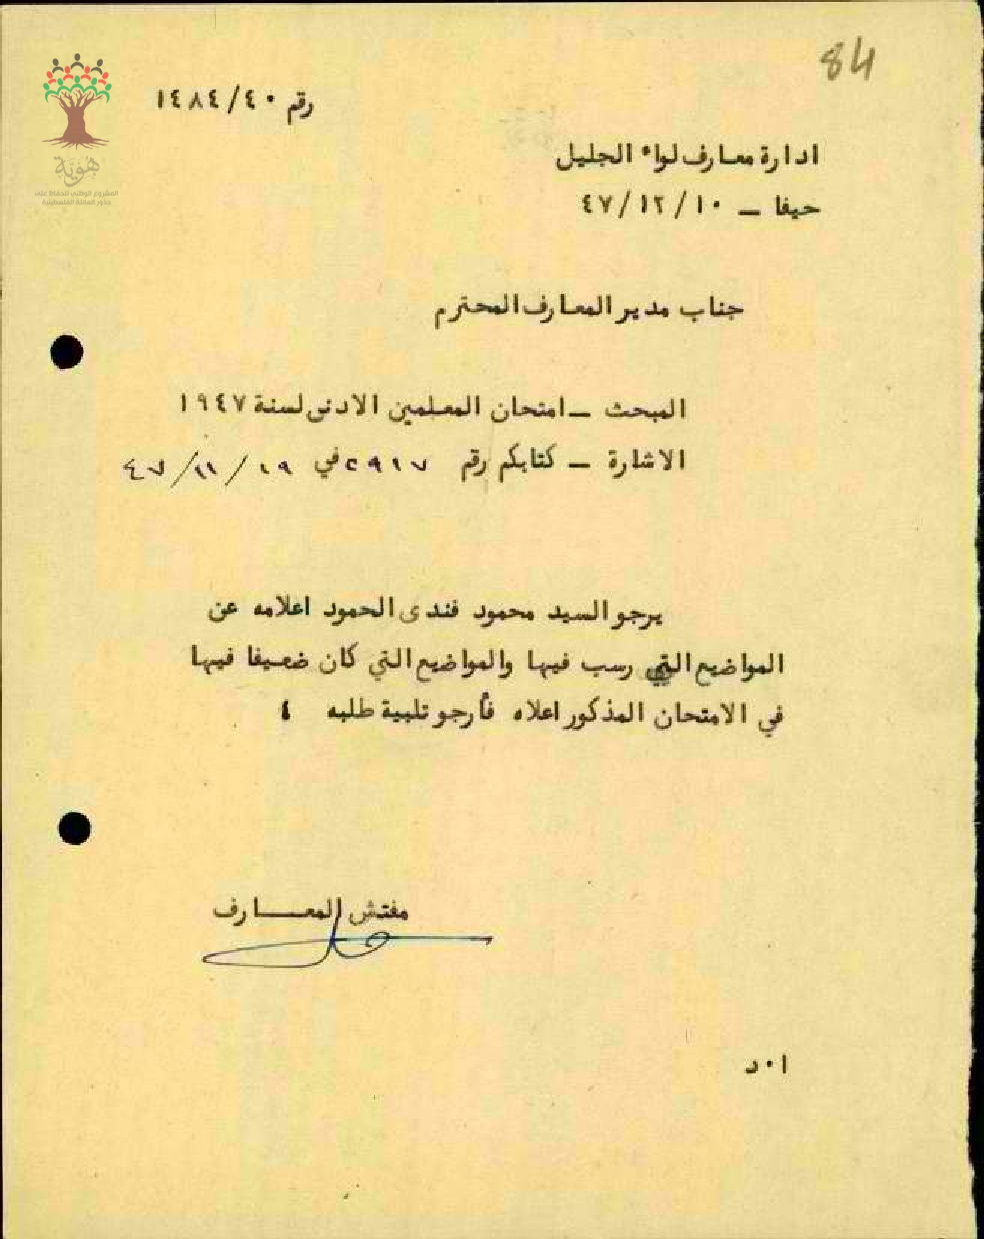 84
رقم ١٤٨٤/٤٠
هوية
المشروع الوطني للحفاظ على
جذور العائلة الفلسطينية
ادارة معارف لواء الجليل
حيفا – ٤٧/١٢/١٠
جناب مدير المعارف المحترم
المبحث – امتحان المعلمين الادنى لسنة ١٩٤٧
الاشارة – كتابكم رقم ٢٩١٧ في ١٩/١١/٤٧
يرجو السيد محمود فندى الحمود اعلامه عن
المواضيع التي رسب فيها والمواضيع التي كان ضعيفا فيها
في الامتحان المذكور اعلاه فأرجو تلبية طلبه ٤
مفتش المعـــارف
ا٠د